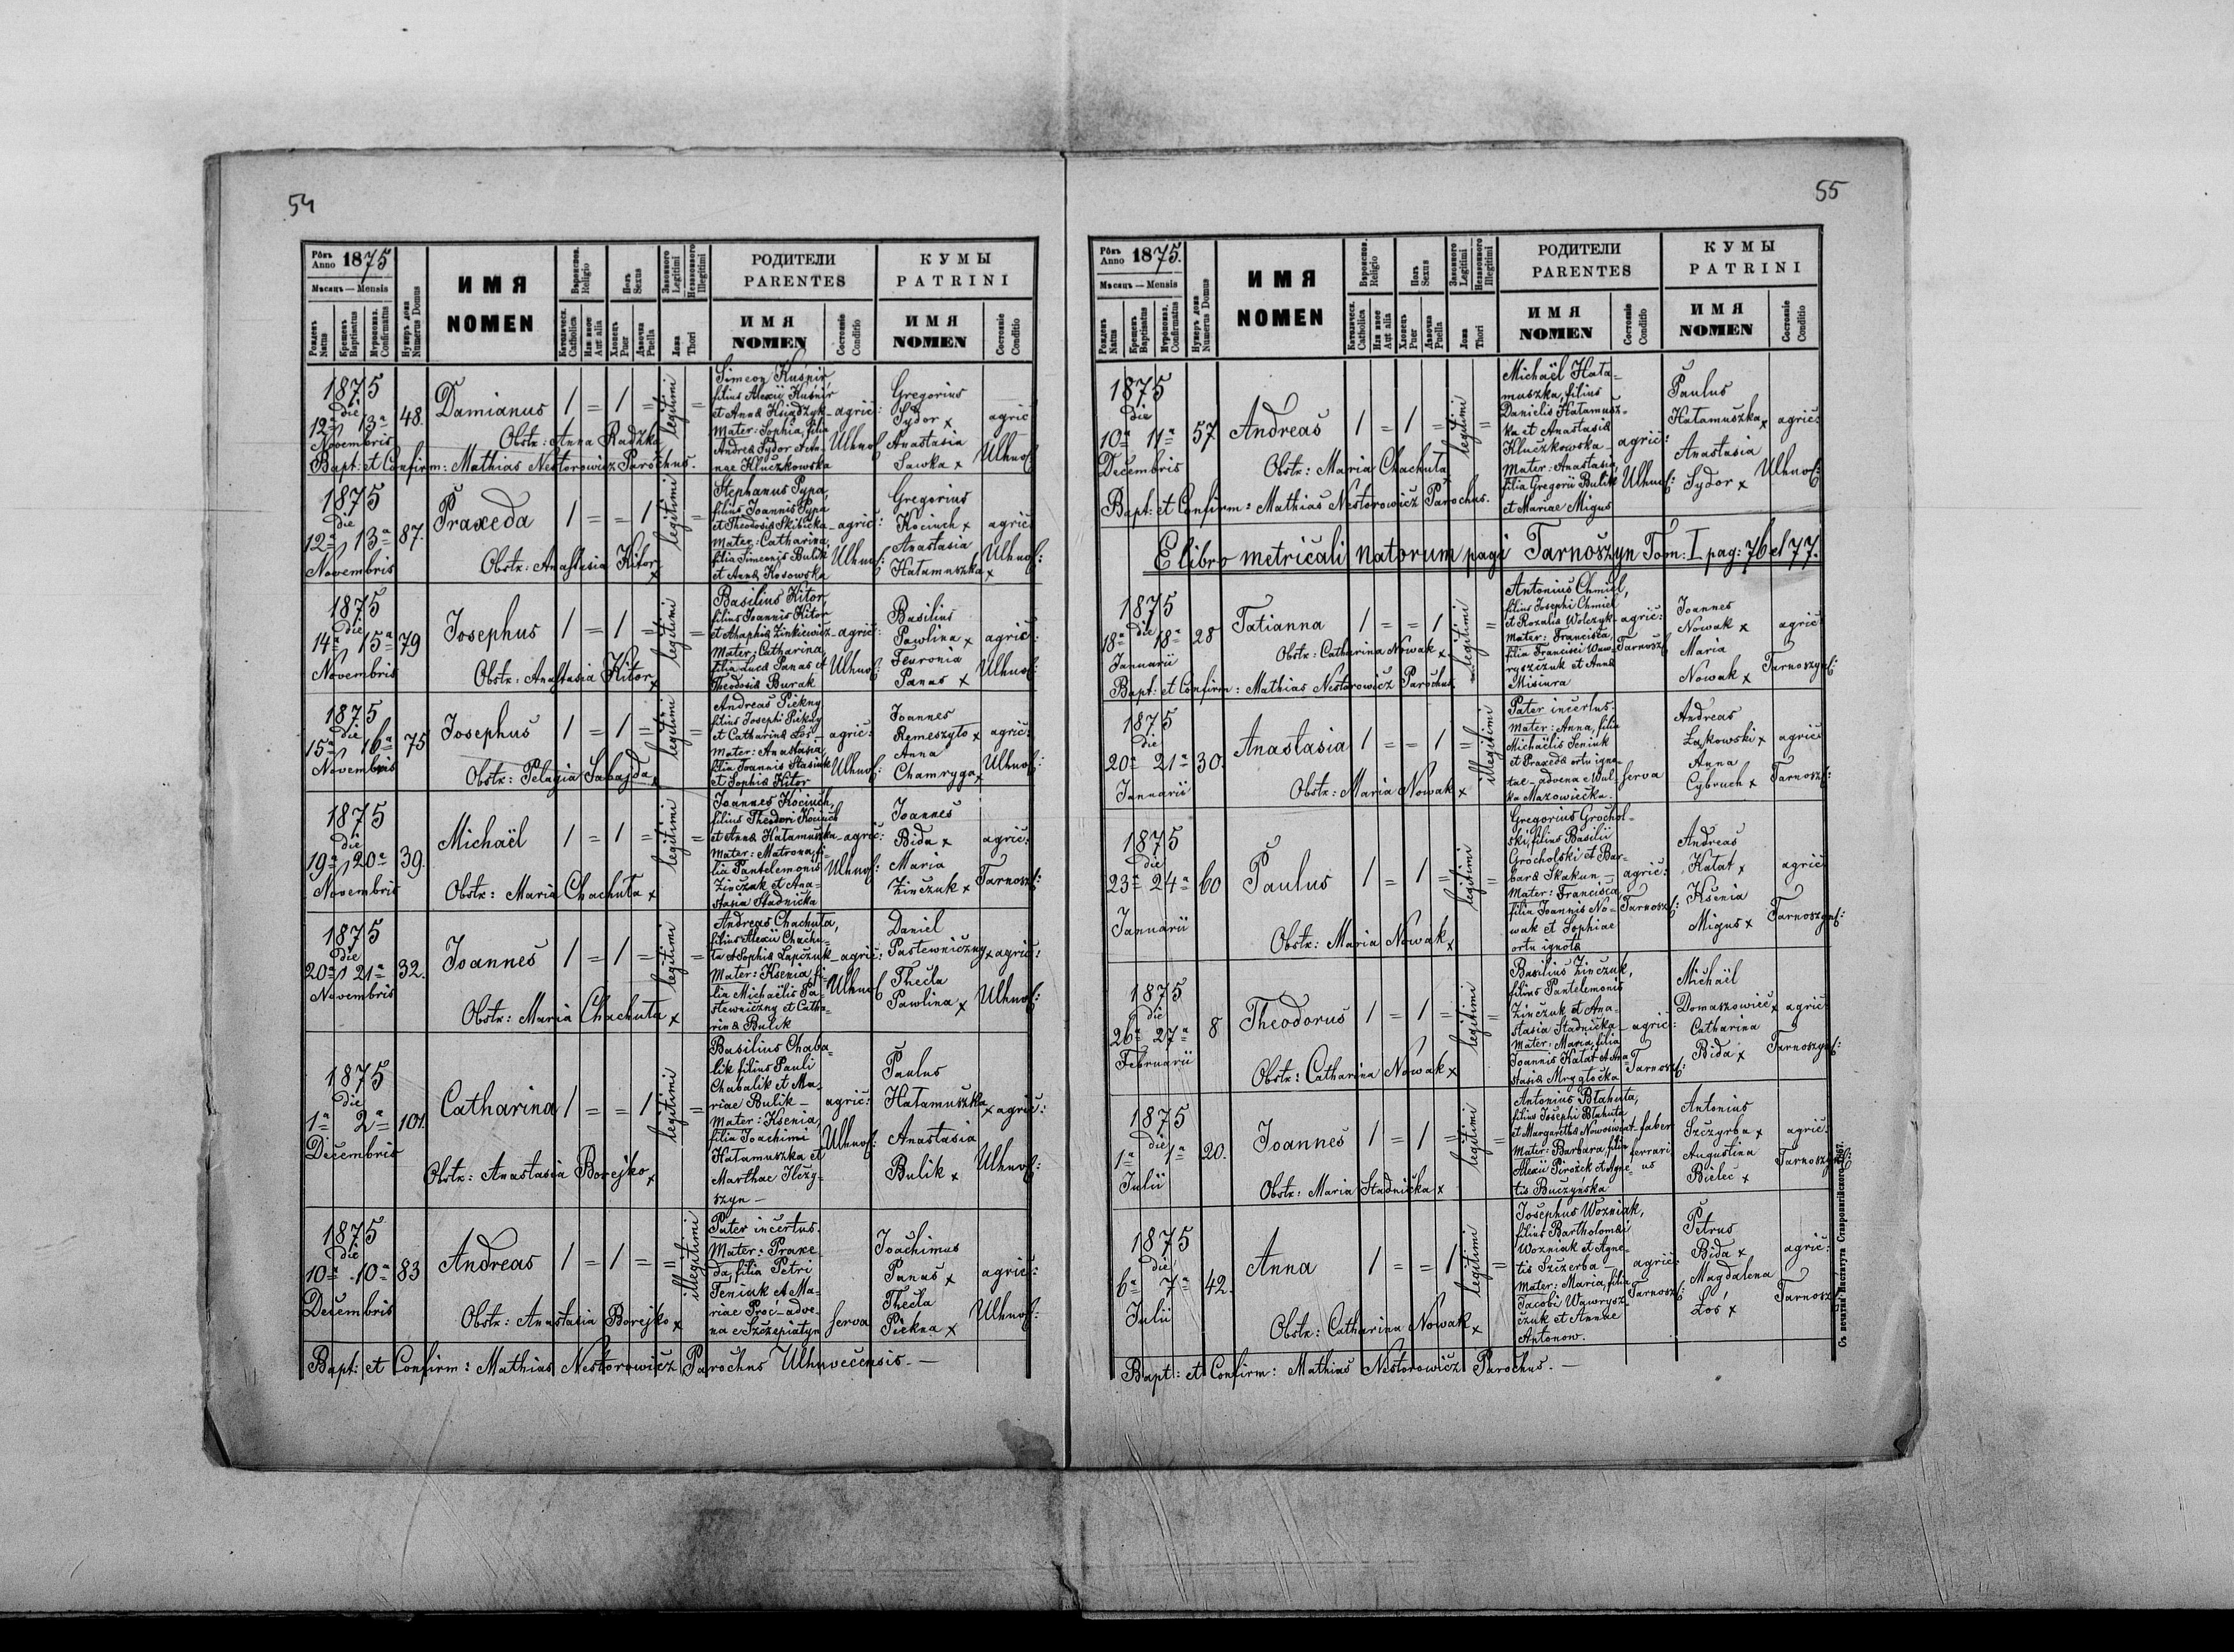 54
Рôкъ Anno 1875
Мѣсяцъ — Mensis
Рожденъ Natus
Крещенъ Baptisatus
Мѵропомаз. Confirmatus
Нумеръ дома Numerus Domus
ИМЯ
NOMEN
Religio
Католическ. Catholica
Или иное Aut alia
Полъ Sexus
Хлопецъ Puer
Дѣвочка Puella
Законного Legitimi
Незаконного Illegitimi
Ложа Thori
РОДИТЕЛИ
PARENTES
ИМЯ
NOMEN
Состояніе Conditio
КУМЫ
PATRINI
ИМЯ
NOMEN
Состояніе Conditio
1875
die
12ª 13ª
Novembris
48.
Damianus
1 = 1 =
legitimi
=
Simeon Kuśnir,
filius Alexii Kuśnir
et Anna Książżyk - agric:
Mater: Sophia, filia
Andrea Sydor et An-
nae Kluczkowska
Ulhnof:
Gregorius
Sydor x
Anastasia
Sawka x
agric
Ulhnof:
Obstx: Anna Radzka
Bapt: et Confirm: Mathias Nestorowicz Parochus.
1875
die
12ª 13ª
Novembris
87.
Praxeda
1 = = 1
legitimi
=
Stephanus Pypa,
filius Joannis Pypa
et Theodosia Skibicka - agric:
Mater: Catharina,
filia Simeonis Bulik
et Anna Kosowska
Ulhnof:
Gregorius
Kociuch x
Anastasia
Hatamuszka x
agric
Ulhnof:
Obstx: Anastasia Kitor x
1875
die
14ª 15ª
Novembris
79
Josephus
1 = 1 =
legitimi
=
Basilius Kitor
filius Joannis Kitor
et Ahaphia Zinkiewicz - agric:
Mater: Catharina,
filia Luca Panas et
Theodosia Burak
Ulhnof:
Basilius
Pawlina x
Fevronia
Panas x
agric:
Ulhnof:
Obstx: Anastasia Kitor x
1875
die
15ª 16ª
Novembris
75
Josephus
1 = 1 =
legitimi
=
Andreas Piekny
filius Josephi Piekny
et Catharina Łoś - agric:
Mater: Anastasia,
filia Joannis Stasiuk
et Sophia Kitor
Ulhnof:
Joannes
Remeszyło x
Anna
Chamryga x
agric:
Ulhnof:
Obstx: Pelagia Sabajda x
1875
die
19ª 20ª
Novembris
39.
Michaël
1 = 1 =
legitimi
=
Joannes Kociuch,
filius Theodori Kociuch
et Anna Hatamuszka - agric:
Mater: Matrona, fi-
lia Pantelemonis
Zinczuk et Ana-
stasia Stadnicka
Ulhnof:
Joannes
Bida x
Maria
Zinczuk x
agric:
Tarnosz:
Obstx: Maria Chachuta x
1875
die
20ª 21ª
Novembris
32.
Joannes
1 = 1 =
legitimi
=
Andreas Chachuta,
filius Alexii Chachu-
ta et Sophia Łapczuk - agric:
Mater: Ksenia, fi-
lia Michaëlis Pa-
stewniczny et Catha-
rina Bulik
Ulhnof:
Daniel
Pastewniczny x
Thecla
Pawlina x
agric:
Ulhnof:
Obstx: Maria Chachuta x
1875
die
1ª 2ª
Decembris
101.
Catharina
1 = = 1
legitimi
=
Basilius Chaba-
lik filius Pauli
Chabalik et Ma-
riae Bulik -
Mater: Ksenia,
filia Joachimi
Hatamuszka et
Marthae
agric:
Ulhnof:
Paulus
Hatamuszka x
Anastasia
Bulik x
agric:
Ulhnof:
Obstx: Anastasia Borejko x
1875
die
10ª 10ª
Decembris
83
Andreas
1 = 1 =
=
illegitimi
Pater incertus.
Mater: Praxe-
da, filia Petri
Feniak et Ma-
riae Proć - adve-
na e Szczepiatyn
serva
Joachimus
Panas x
Thecla
Piekna x
agric:
Ulhnof:
Obstx: Anastasia Borejko x
Bapt: et Confirm: Mathias Nestorowicz Parochus Ulhuvecensis. —
55
Рôкъ Anno 1875.
Мѣсяцъ — Mensis
Рожденъ Natus
Крещенъ Baptisatus
Мѵропомаз. Confirmatus
Нумеръ дома Numerus Domus
ИМЯ
NOMEN
Religio
Католическ. Catholica
Или иное Aut alia
Полъ Sexus
Хлопецъ Puer
Дѣвочка Puella
Законного Legitimi
Незаконного Illegitimi
Ложа Thori
РОДИТЕЛИ
PARENTES
ИМЯ
NOMEN
Состояніе Conditio
КУМЫ
PATRINI
ИМЯ
NOMEN
Состояніе Conditio
1875
die
10ª 11ª
Decembris
57
Andreas
1 = 1 =
legitimi
=
Michaël Hata-
muszka, filius
Danielis Hatamusz-
ka et Anastasia
Kluczkowska -
Mater: Anastasia,
filia Gregorii Bulik
et Mariae Migus
agric:
Ulhnof:
Paulus
Hatamuszka x
Anastasia
Sydor x
agric:
Ulhnof:
Obstx: Maria Chachuta x
Bapt: et Confirm: Mathias Nestorowicz Parochus.
E libro metricali natorum pagi Tarnoszyn Tom: I pag: 76 et 77.
1875
die
18ª 18ª
Januarii
28
Tatianna
1 = = 1
legitimi
=
Antonius Chmiel,
filius Josephi Chmiel
et Rozalia Wolczyk - agric:
Mater: Francisca,
filia Francisci Waw-
ryszczuk et Anna
Misiura
Tarnosz:
Joannes
Nowak x
Maria
Nowak x
agric:
Tarnoszyn:
Obstx: Catharina Nowak x
Bapt: et Confirm: Mathias Nestorowicz Parochus
1875
die
20ª 21ª
Januarii
30.
Anastasia
1 = = 1
=
illegitimi
Pater incertus.
Mater: Anna, filia
Michaëlis Seniuk
et Praxeda ortu igno-
tae - advena e Wul-
ka Mazowiecka
serva
Andreas
Łąkowski x
Anna
Cybruch x
agric
Tarnosz:
Obstx: Maria Nowak x
1875
die
23ª 24ª
Januarii
60
Paulus
1 = 1 =
legitimi
=
Gregorius Grochol-
ski, filius Basilii
Grocholski et Bar-
bara Skakun -
Mater: Francisca
filia Joannis No-
wak et Sophiae
ortu ignota
agric:
Tarnosz:
Andreas
Katat x
Ksenia
Migus x
agric
Tarnoszyn:
Obstx: Maria Nowak x
1875
die
26ª 27ª
Februarii
8
Theodorus
1 = 1 =
legitimi
=
Basilius Zinczuk,
filius Pantelemonis
Zinczuk et Ana-
stasia Stadnicka - agric:
Mater: Maria, filia
Joannis Katat et Ana-
stasia Mrygłocka
Tarnosz:
Michaël
Domaszowiec x
Catharina
Bida x
agric
Tarnoszyn:
Obstx: Catharina Nowak x
1875
die
1ª 1ª
Julii
20.
Joannes
1 = 1 =
legitimi
=
Antonius Błahuta,
filius Josephi Błahuta
et Margaretha Nowoswiat - faber
Mater: Barbara, filia ferrari-
Alexii Pirożek et Agne- us
tis Buczyńska
Antonius
Szczyrba x
Augustina
Bielec x
agric:
Tarnoszyn:
Obstx: Maria Stadnicka x
1875
die
6ª 7ª
Julii
42.
Anna
1 = = 1
legitimi
=
Josephus Wozniak,
filius Bartholomai
Wozniak et Agne-
tis Szczerba -
Mater: Maria, filia
Jacobi Wawrysz-
czuk et Annae
Antonow.
agric:
Tarnosz:
Petrus
Bida x
Magdalena
Łoś x
agric:
Tarnosz:
Obstx: Catharina Nowak x
Bapt: et Confirm: Mathias Nestorowicz Parochus. —
Съ печатни Института Ставропигійского 1867.